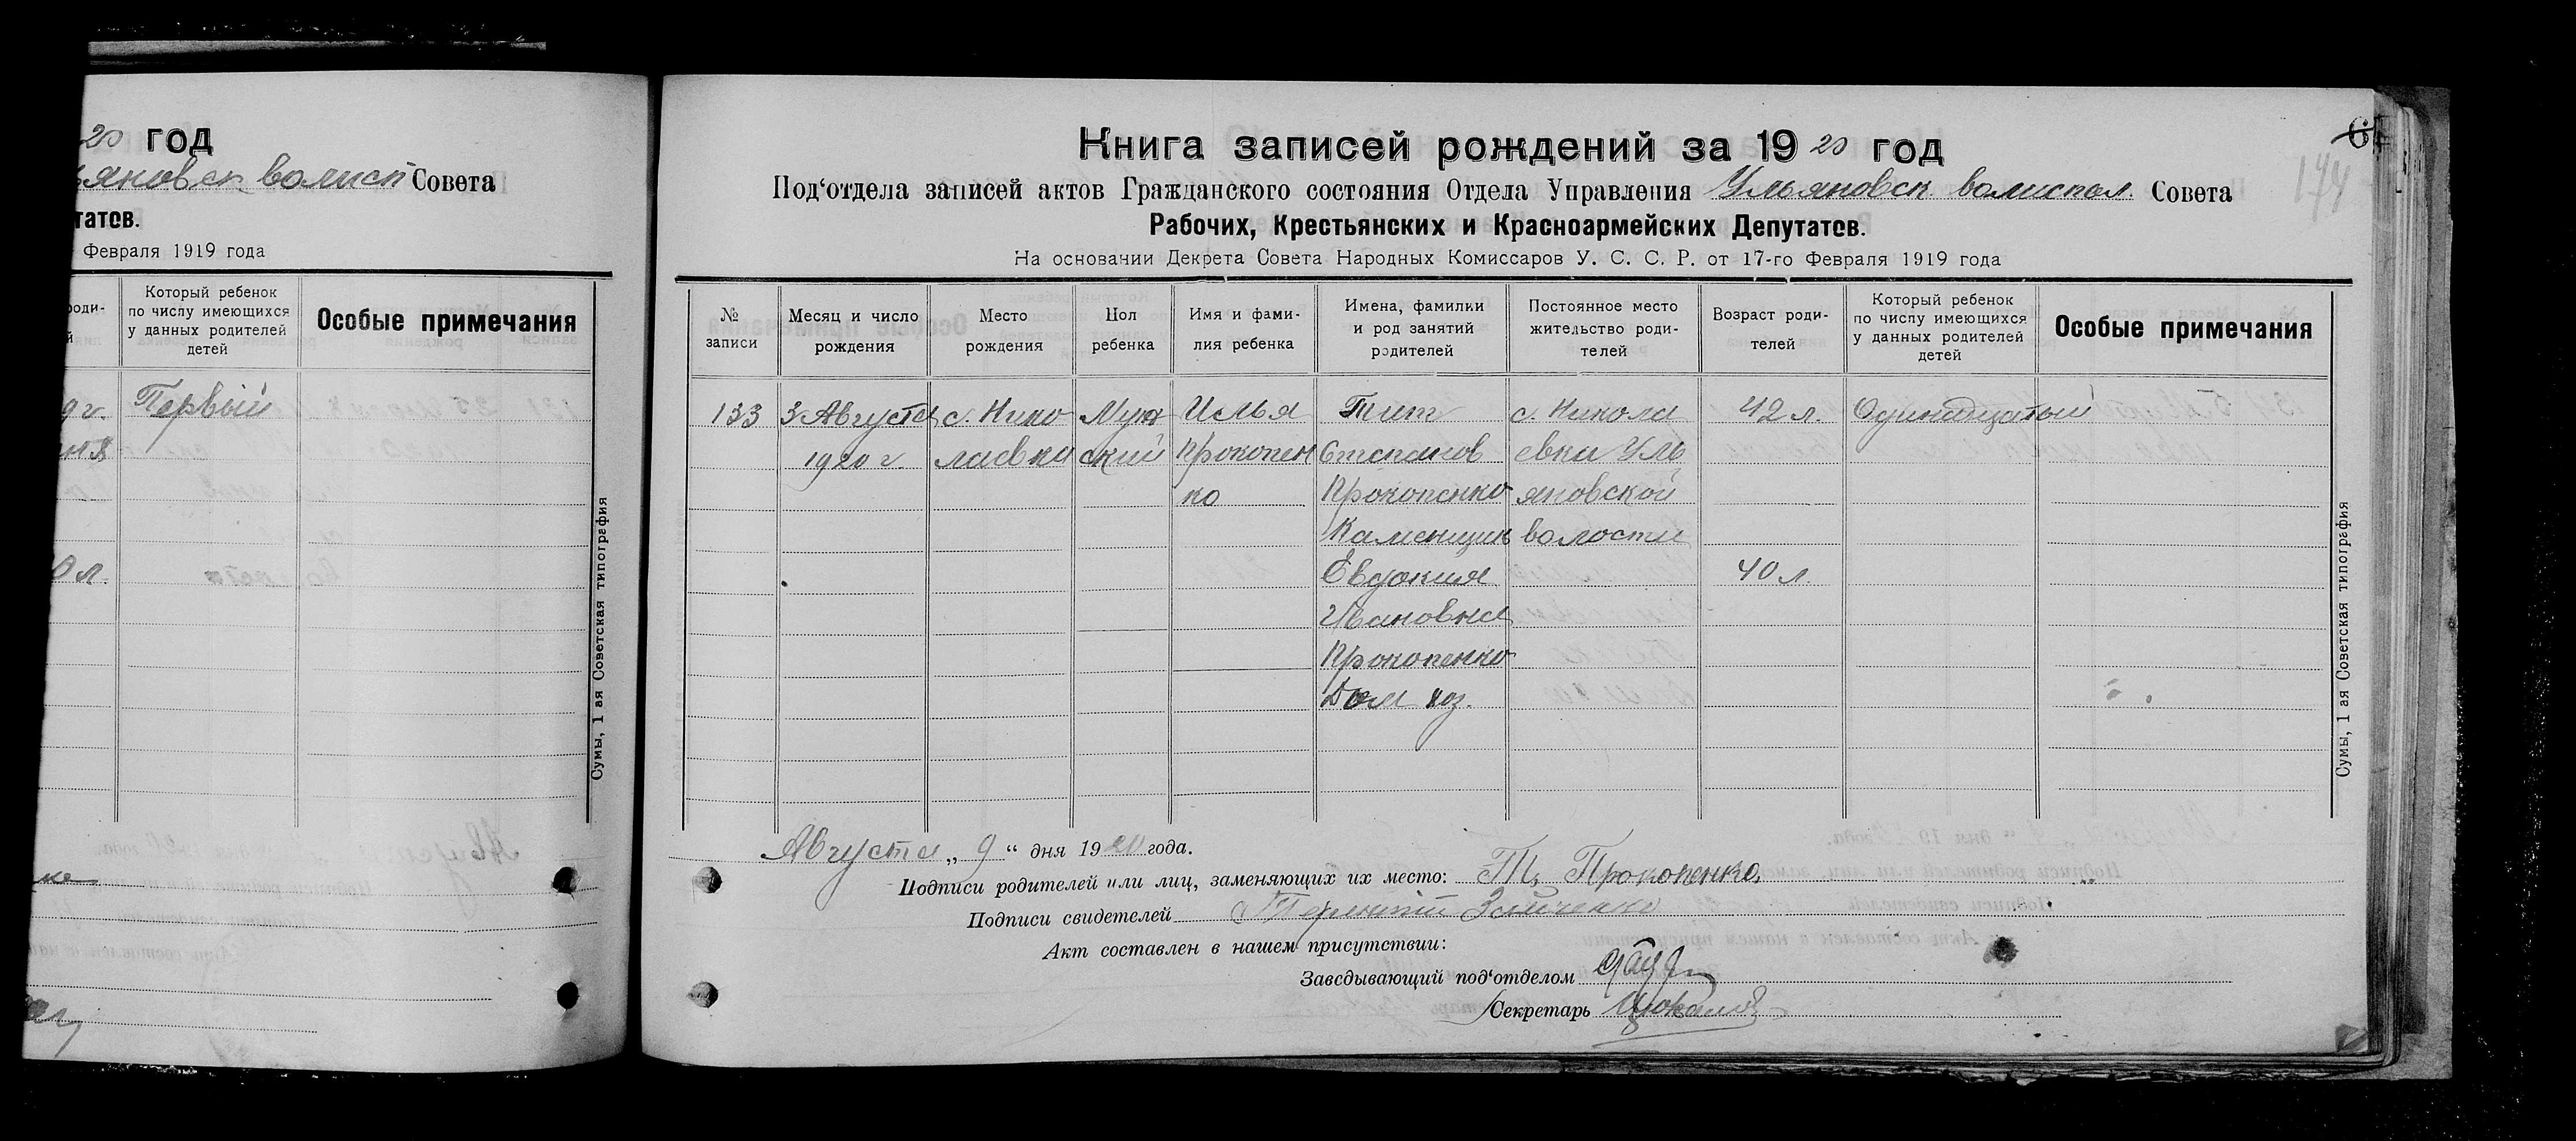 20 год
яновск волисп Совета
татов.
Февраля 1919 года
роди-
й
Который ребенок
по числу имеющихся
у данных родителей
детей
Особые примечания
9 г.
Первый
0 л.
Сумы, 1 ая Советская типография
Книга записей рождений за 1920 год
6
174
Под‘отдела записей актов Гражданского состояния Отдела Управления Ульяновск волиспол. Совета
Рабочих, Крестьянских и Красноармейских Депутатов.
На основании Декрета Совета Народных Комиссаров У. С. С. Р. от 17-го Февраля 1919 года
№
записи
Месяц и число
рождения
Место
рождения
Пол
ребенка
Имя и фами-
лия ребенка
Имена, фамилии
и род занятий
родителей
Постоянное место
жительство роди-
телей
Возраст роди-
телей
Который ребенок
по числу имеющихся
у данных родителей
детей
Особые примечания
133 3 Августа с. Нико Муж Илья Тит с. Никола 42 л. Одинадцатый
1920 г. лаевка ский Прокопен Степанов евка Уль
ко Прокопенко яновской
Каменщик волости
Евдокия 40 л.
Ивановна
Прокопенко
Дом хоз.
Сумы, 1 ая Советская типография
Августа „ 9 “ дня 1920 года.
Подписи родителей или лиц, заменяющих их место: Т. Прокопенко
Подписи свидетелей Терентий Заиченко
Акт составлен в нашем присутствии:
Заведывающий под‘отделом
Секретарь